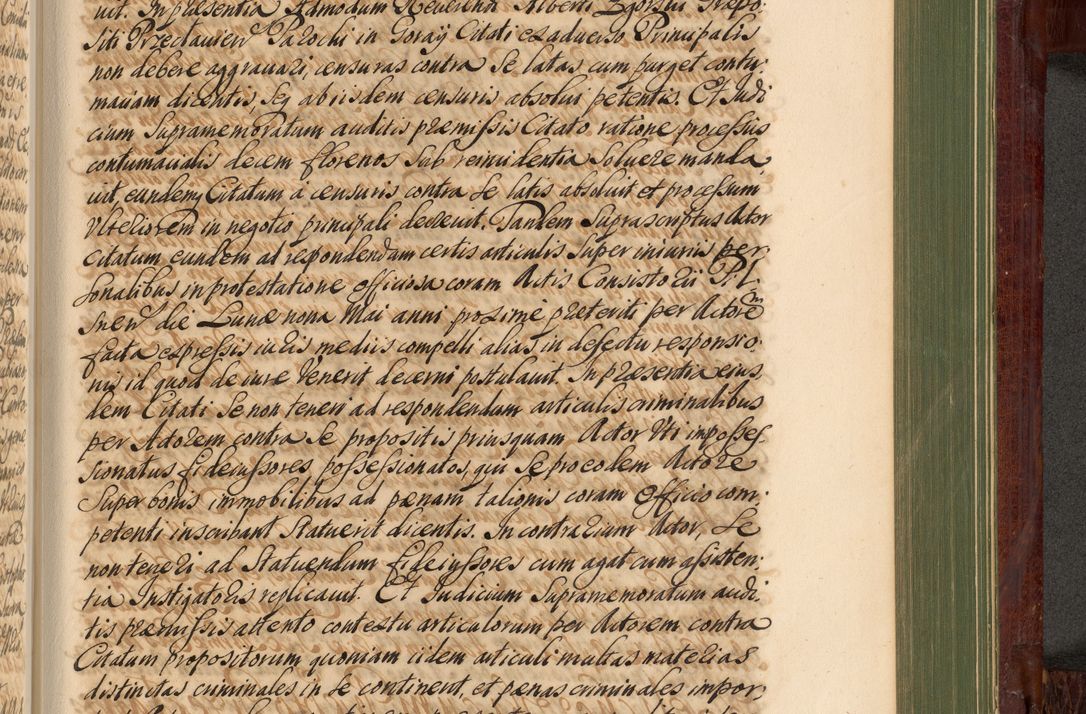 uit. In præsentia Admodum Reverendi Alberti Zgorski Præpo,
siti Przeclaviens Parochi in Goraÿ Citati ex adverso Principalis
non debere aggravari, censuras contra se latas cum purget contu,
maciam dicentis, seq ab iisdem censuris absolvi petentis. Et Judi
cium Supramemoratum auditis præmissis Citato, ratione processus
contumacialis decem florenos sub reincidentia solvere manda,
uit, eundemq Citatum à censuris contra se latis absoluit et processum
Vlteriorem in negotio principali decreuit. Tandem Suprascriptus Actor
Citatum eundem ad respondendum certis articulis super iniuriis per,
sonalibus in protestatione officiosa coram Actis Consistorii Pil,
snens die Lunæ nona Mai anni proximè præteriti per Actorem
facta expressis iuris mediis compelli alias in defectu responsio,
nis id quod de iure Venerit decerni postulauit. In præsentia eius,
dem Citati se non teneri ad respondendum articulis criminalibus
per Actorem contra se propositis priusquam Actor Vti imposses,
sionatus fideiussores possessionatos, qui se pro eodem Actore
super bonis immobilibus ad pænam talionis coram Officio com,
petenti inscribant Statuerit dicentis. In contrarium Actor, se
non teneri ad Statuendum fideiussores cum agat cum assisten,
tia Instigatoris replicauit. Et Judicium Supramemoratum audi,
tis præmissis attento contextu articulorum per Actorem contra
Citatum propositorum quoniam iidem articuli multas materias
distinctas criminales in se continent, et pænas criminales impor,